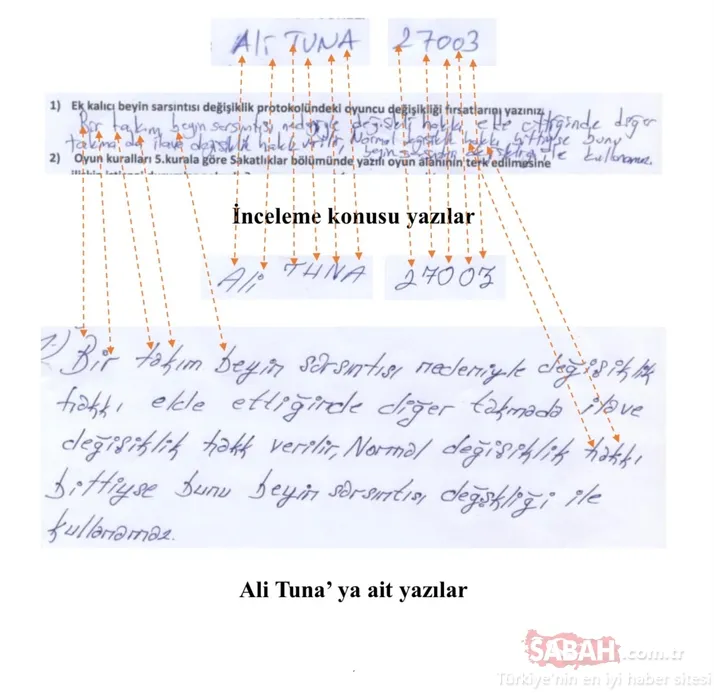 Ali TUNA 27003
1) Ek kalıcı beyin sarsıntısı değişiklik protokolündeki oyuncu değişikliği fırsatlarını yazınız.
Bir takım beyin sarsıntısı nedeniyle değişiklik hakkı elde ettiğinde diğer
takıma da ilave değişiklik hakkı verilir, Normal değişiklik hakkı bittiyse bunu
beyin sarsıntısı ile kullanamaz.
2) Oyun kuralları 5.kurala göre Sakatlıklar bölümünde yazılı oyun alanının terk edilmesine
İnceleme konusu yazılar
Ali TUNA 27003
1-) Bir takım beyin sarsıntısı nedeniyle değişiklik
hakkı elde ettiğinde diğer takımada ilave
değişiklik hakk verilir, Normal değişiklik hakkı
bittiyse bunu beyin sarsıntısı değşkliği ile
kullanamaz.
Ali Tuna' ya ait yazılar
SABAH.com.tr
Türkiye'nin en iyi haber sitesi